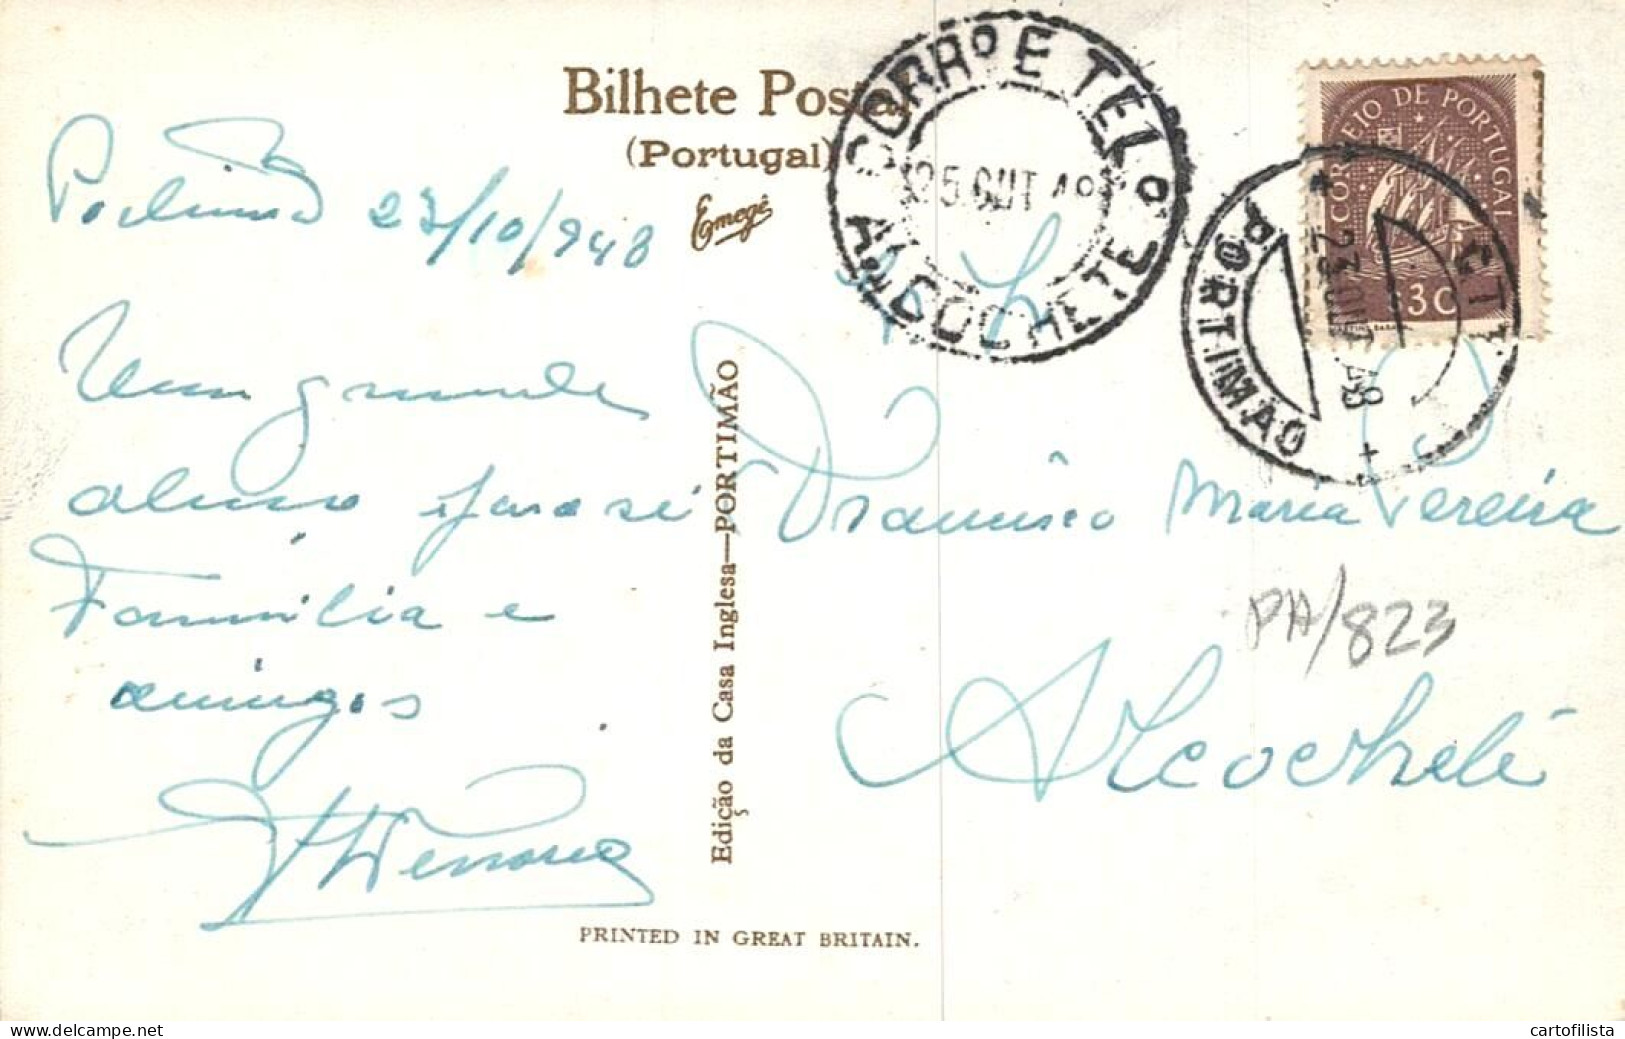 Bilhete Postal
(Portugal)
Emegê
CORRº E TELº
25 OUT 48
ALCOCHETE
CORREIO DE PORTUGAL
$30
CTT
23 OUT 48
PORTIMAO
23/10/948
Um grande
abraço para si
Familia e
amigos
Francisco Maria Pereira
Alcochete
PA/823
Edição da Casa Inglesa—PORTIMÃO
PRINTED IN GREAT BRITAIN.
delcampe.net
cartofilista